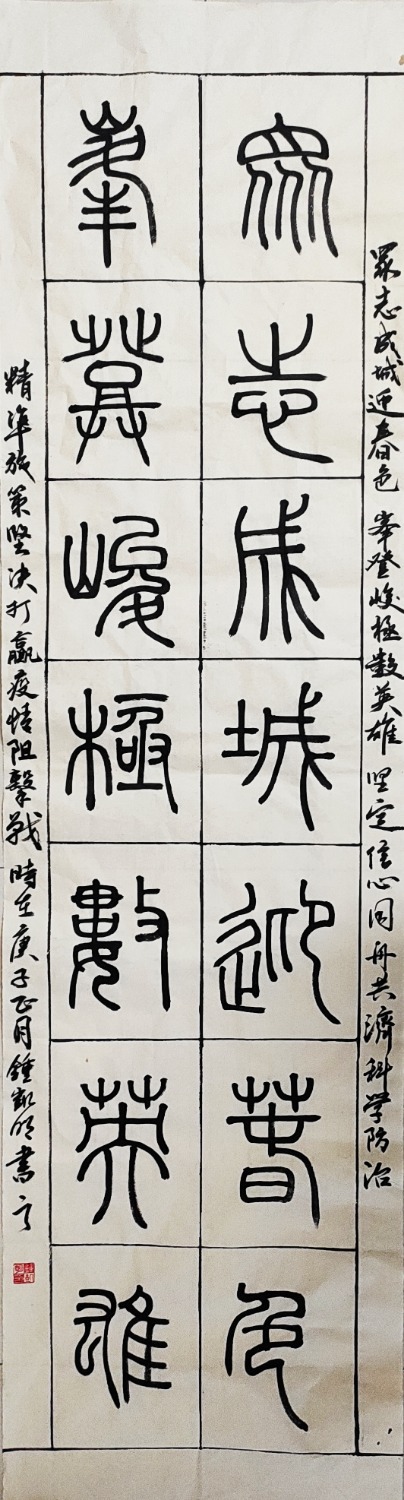 眾志成城迎春色 峯登峻極數英雄 坚定信心同舟共濟科学防治
眾志成城迎春色
峯登峻極數英雄
精準施策堅决打贏疫情阻擊戰 時在庚子正月鍾書